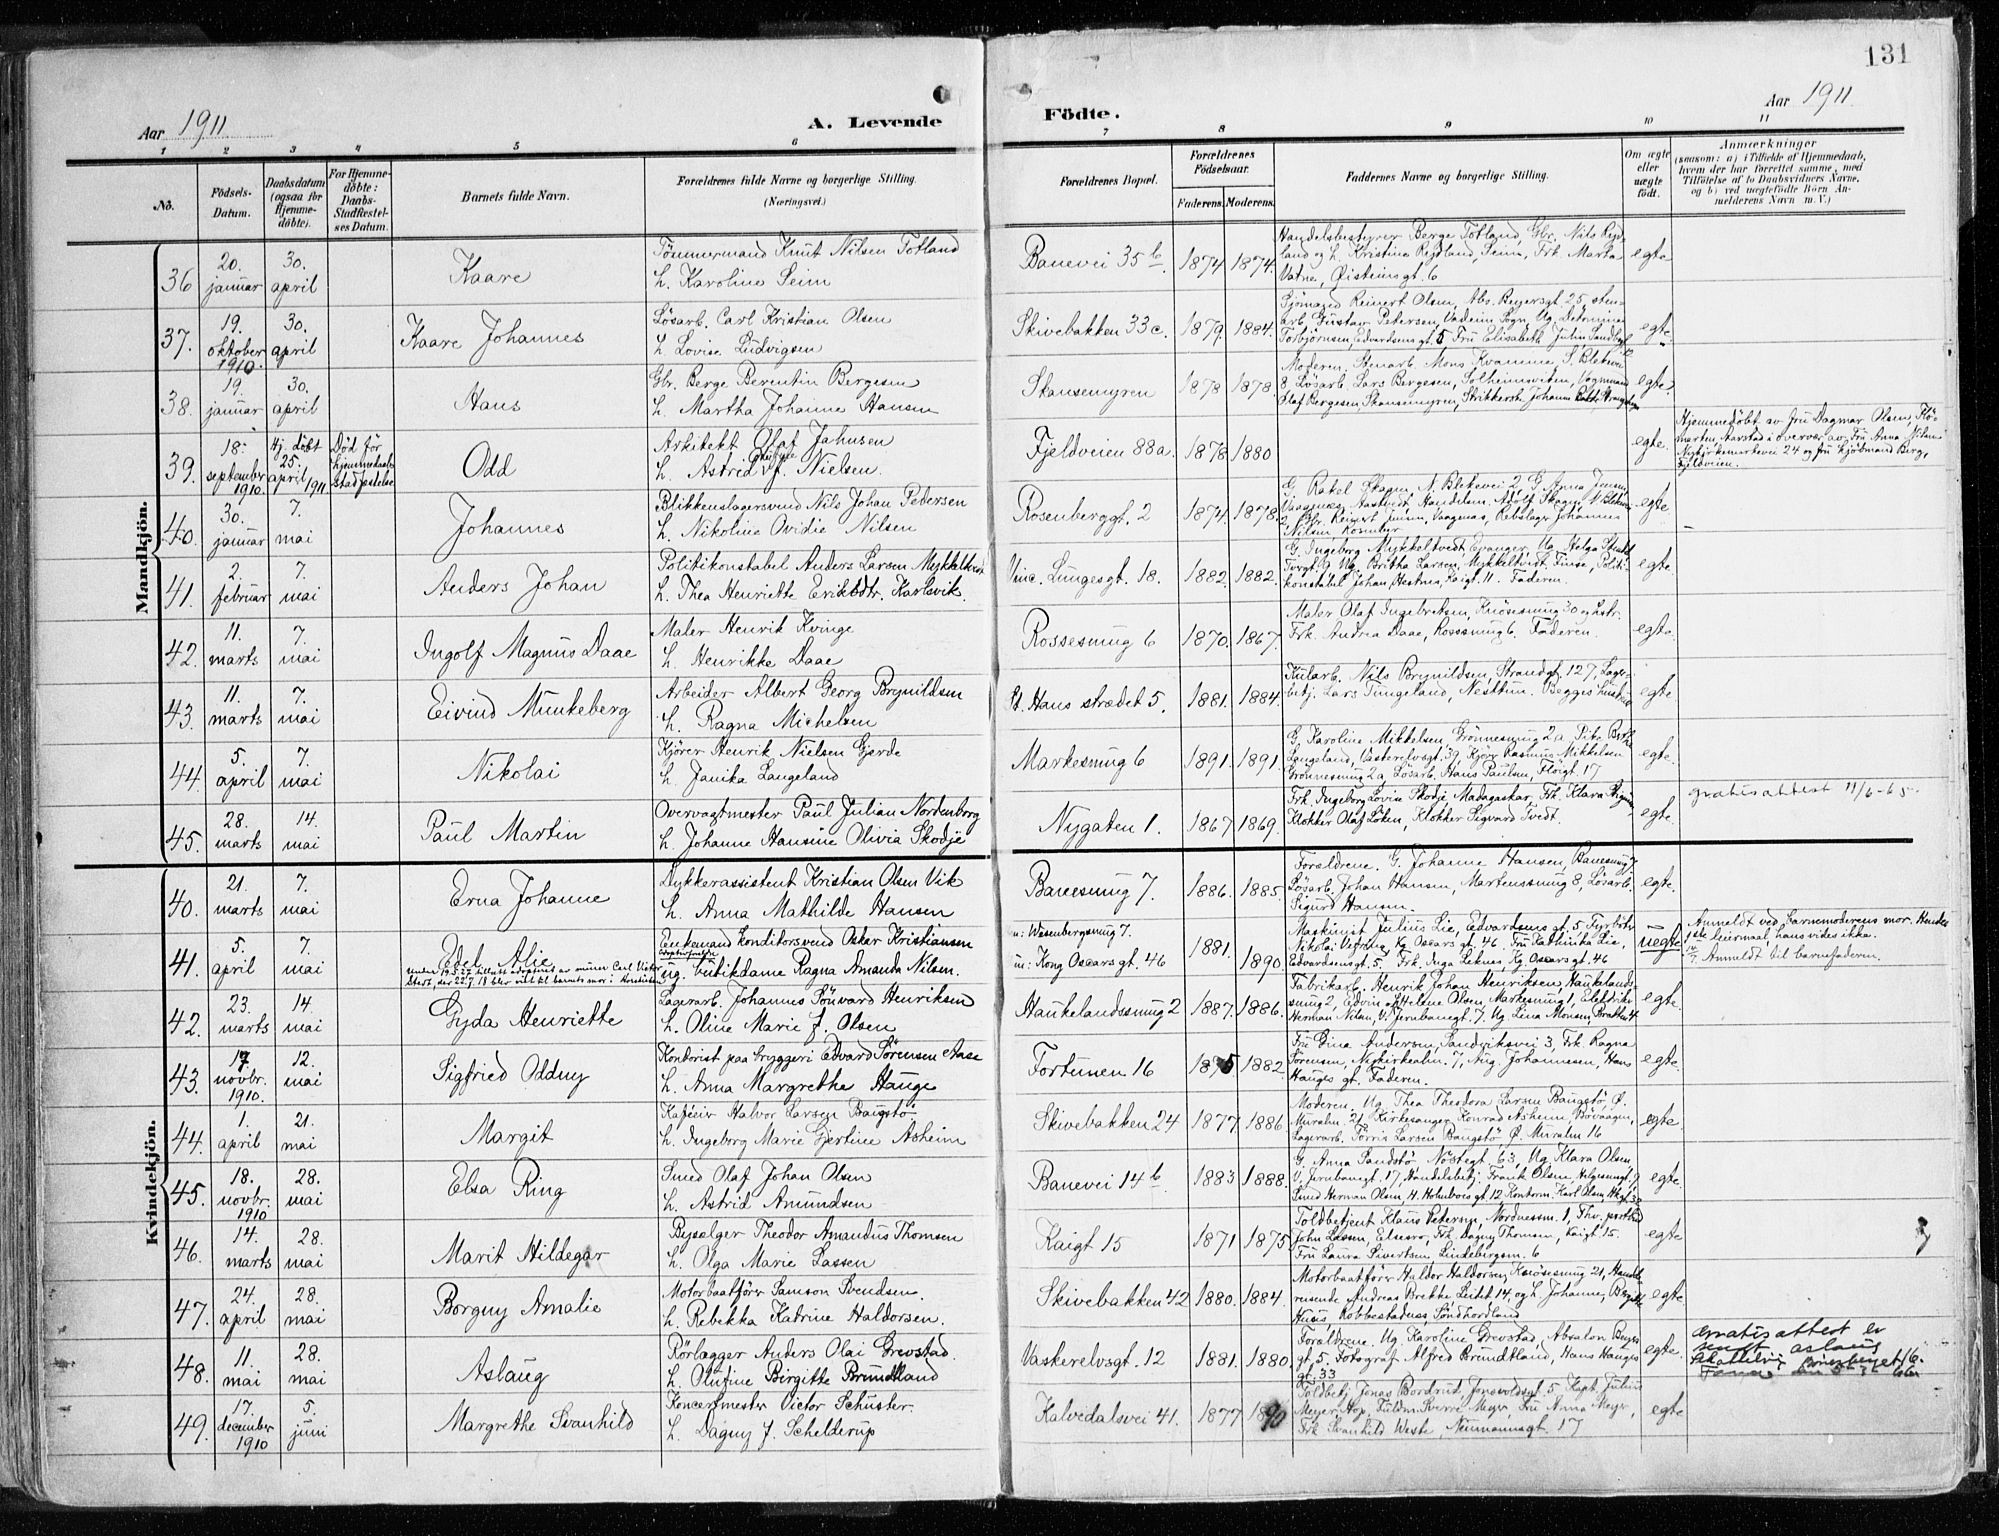 131
Aar 1911
A. Levende
Födte.
Aar 1911.
1 2 3 4 5 6 7 8 9 10 11
No.
Födsels-
Datum.
Daabsdatum
(ogsaa for
Hjemme-
döbte).
For Hjemme-
döbte:
Daabs-
Stadfæstel-
ses Datum.
Barnets fulde Navn.
Forældrenes fulde Navne og borgerlige Stilling.
(Næringsvei.)
Forældrenes Bopæl.
Forældrenes
Födselsaar.
Faderens. Moderens.
Faddernes Navne og borgerlige Stilling.
Om ægte
eller
uægte
födt.
Anmærkninger
(saasom: a) i Tilfælde af Hjemmedaab,
hvem der har forrettet samme, med
Tilföielse af to Daabsvidners Navne,
og b) ved uægtefödte Börn An-
melderens Navn m. V.)
Mandkjön.
36 20. januar 30. april Kaare
Tömmermand Knut Nilsen Totland
h. Karoline Seim
Banevei 35b 1874 1874.
Handelsbestyrer Berge Totland, Gbr. Nils Rejd-
land og h. Kristina Rejdland, Seim, Frk. Marta
Vatne, Øisteinsgt. 6
egte
37. 19. oktober 1910. 30. april Kaare Johannes
Lösarb. Carl Kristian Olsen
h. Lovise Ludvigsen
Skivebakken 33c. 1879. 1884.
Sjömand Reinert Olsen, Abs. Beyersgt. 25, sten-
arb. Gustav Petersen, Vadheim Sogn, Ug.
Torbjörnsen, Edvardsensgt. 5 Fru Elisabeth Julin
egte.
38. 19. januar 30. april Hans
Gbr. Berge Berentin Bergesen
h. Martha Johanne Hansen
Skansemyren 1878 1878.
Moderen. Stenarb. Mons Kvamme, S. Blekevei
8, Lösarb. Lars Bergesen, Solheimsviken, Vognmand
Olaf Bergesen, Skansemyren, Strikkerske Johanne
egte.
39. 18. september 1910. Hj. döbt 25. april 1911. Död för hjemmedaabs stadfæstelse Odd
Arkitekt Olaf Jahnsen
h. Astrid f. Nielsen.
Fjeldveien 88a. 1878 1880
egte.
Hjemmedöbt av fru Dagmar Olsen, Flö-
marken, Aarstad i overvær av Fru Anna Nilsen
Nykirkemarkevei 24 og fru Kjöbmand Berg,
Fjeldveien.
40. 30. januar 7. mai Johannes
Blikkenslagersvend Nils Johan Pedersen
h. Nikoline Ovidie Nilsen
Rosenberggt. 2 1874. 1878.
G. Rakel Skagen, N. Blekevei 2, G. Anna Jensen,
Vaagsnes, Aastveidt, Handelsm. Adolf Skagen, N. Blekevei
2, Gbr. Reinert Jensen, Vaagsnes, Rebslager Johannes
Nilsen
egte
41. 2. februar 7. mai Anders Johan
Politikonstabel Anders Larsen Mykkeltvedt
h. Thea Henriette Eriksdtr. Karlsvik.
Vinc. Lungesgt. 18. 1882. 1882.
G. Ingeborg Mykkeltvedt, Evanger, Ug. Helga
Torvgt. 9, Ug. Britha Larsen, Mykkeltvedt, Finse, Politi-
konstabel Johan Hestnes, Kaigt. 11. Faderen.
egte.
42. 11. marts 7. mai Ingolf Magnus Daae
Maler Henrik Kvinge
h. Henrikke Daae
Rossesmug 6 1870. 1867.
Maler Olaf Ingebrigtsen, Knösesmug 30 og hstr.
Frk. Andrea Daae, Rossesmug 6. Faderen.
egte
43. 11. marts 7. mai Eivind Munkeberg
Arbeider Albert Georg Brynildsen
h. Ragna Michelsen
St. Hans strædet 5. 1881. 1884.
Kularb. Nils Brynildsen, Strandgt. 127, Lager-
betj. Lars Tungeland, Nesttun. Begges hustruer
egte
44. 5. april 7. mai Nikolai
Kjörer Henrik Nielsen Gjerde
h. Janika Langeland
Markesmug 6 1891. 1891.
G. Karoline Mikkelsen, Grönnesmug 2a, Pike Berthe
Langeland, Vaskerelvsgt. 39, Kjörer Rasmus Mikkelsen
Grönnesmug 2a, Lösarb. Hans Paulsen, Flöigt. 17
egte.
45. 28. marts 14. mai Paul Martin
Overvagtmester Paul Julian Nordenborg
h. Johanne Hansine Olivia Skodje
Nygaten 1. 1867 1869.
Frk. Ingeborg Lovise Skodje, Madagaskar, Frk. Klara
Klokker Olaf Löken, Klokker Sigvard Tvedt.
egte.
gratisattest 11/6-65-
Kvindekjön.
40. 21. marts 7. mai Erna Johanne
Dykkerassistent Kristian Olsen Vik
h. Anna Mathilde Hansen
Banesmug 7. 1886. 1885.
Forældrene. G. Johanne Hansen, Banesmug 7.
Lösarb. Johan Hansen, Martenssmug 8, Lösarb.
Sigurd Hansen.
egte.
41. 5. april 7. mai Edel Alie
Enkemand konditorsvend Oskar Kristiansen
ug. butikdame Ragna Amanda Nilsen.
: Wesenbergsmug 7.
: Kong Oscars gt. 46
1881. 1890.
Maskinist Julius Lie, Edvardsens gt. 5, Fyrböter
Nikolai Kg. Oscars gt. 46. Fru Kathinka Lie,
Edvardsensgt. 5. Frk. Inga Leknes, Kg. Oscars gt. 46
uegte
Anmeldt ved barnemoderens mor. Hendes
1ste leiermaal hans vides ikke.
Anmeldt til barnefaderen.
42. 23. marts 14. mai Gyda Henriette
Lagerarb. Johannes Sönvard Henriksen
h. Oline Marie f. Olsen
Haukelandssmug 2 1887. 1886.
Fabrikarb. Henrik Johan Henriksen, Haukelands-
smug 2, Edvin & Helene Olsen, Markesmug 1, Elektriker
Herman Nilsen, V. Jernbanegt. 7. Ug Lina Monsen, Bratten 4
egte
43. 17 novbr. 1910. 12. mai Sigfried Oddny
Kontorist paa bryggeri Edvard Sörensen Aase
h. Anna Margrethe Hauge
Fortunen 16 1885 1882.
Fru Gina Andersen, Sandviksvei 3, Frk. Ragna
Sörensen, Nykirkealm. 7, Aug. Johannessen, Hans
Hauges gt. Faderen.
egte
44. 1. april 21. mai Margit
Kaféeier Halvor Larsen Baugstö
h. Ingeborg Marie Gjertine Asheim
Skivebakken 24 1877. 1886.
Moderen. Ug. Thea Theodora Larsen Baugstö Ø.
Muralm. 21, Kirkesanger Konrad Asheim, Bövaagen,
Lagerarb. Torris Larsen Baugstö, Ø. Muralm 16
egte.
45. 18. novbr. 1910 28. mai Elsa Ring
Smed Olaf Johan Olsen
h. Astrid Amundsen
Banevei 14b 1883 1888.
G. Anna Sandstö, Nöstegt. 63, Ug. Klara Olsen
V. Jernbanegt. 17, Handelsbetj. Frank Olsen, Helgesmugt. 9
Smed Herman Olsen, H. Holmboes gt. 12, Kontorm. Karl Olsen
egte.
46. 14. marts 28. mai Marit Hildegar
Bysælger Theodor Amandus Thomsen
h. Olga Marie Lassen
Kaigt 15 1871 1875
Toldbetjent Klaus Petersen, Nordnessm. 1,
John Lassen, Elsesro, Frk. Dagny Thomsen, Kaigt 15.
Fru Laura Sivertsen Lindebergsm. 6
egte
47. 24. april 28. mai Borgny Amalie
Motorbaatförer Samson Svendsen.
h. Rebekka Katrine Haldorsen.
Skivebakken 42 1880. 1884.
Motorbaatförer Haldor Haldorsen, Knösesmug 21, Handels-
reisende Andreas Brekke Leitet 14, og h. Johanne,
Huus, Robbestadnes, Söndhordland
egte
48. 11. mai 28. mai Aslaug
Rörlægger Anders Olai Grevstad.
h. Olufine Birgitte Brundtland
Vaskerelvsgt. 12 1881. 1880.
Forældrene. Ug. Karoline Grevstad, Absalon Beyers
gt. 5. Fotograf Alfred Brundtland, Hans Hauges
gt. 33
egte.
Gratisattest er
sendt Aslaug
49. 17. december 1910 5. juni Margrethe Svanhild
Koncertmester Victor Schuster.
h. Dagny f. Schelderup
Kalvedalsvei 41. 1877 1890
Toldbetj. Jonas Bordrud, Jonsvoldsgt. 5, Kapt. Julius
Meyer, Hop, Fuldm. Sverre Meyer, Fru Anna Meyer,
Frk Svanhild Weste, Neumannsgt. 17
egte